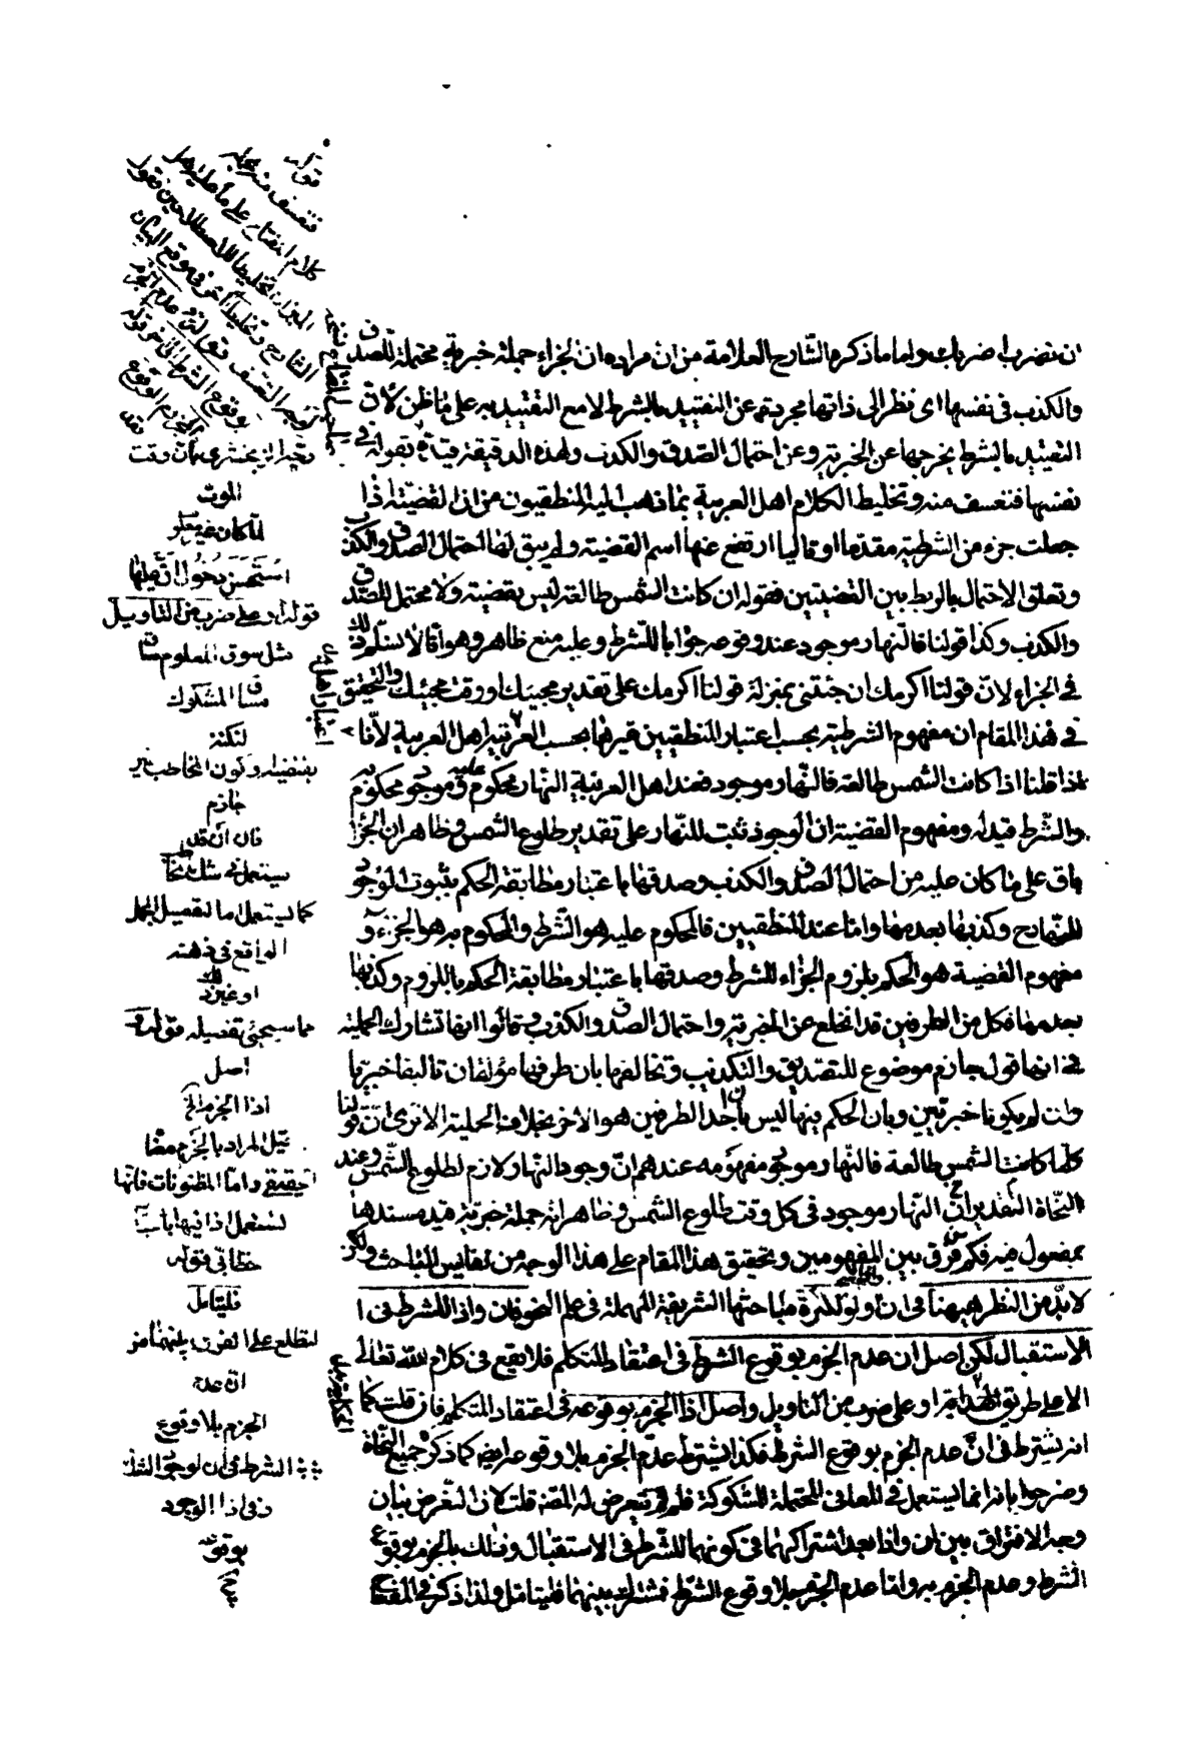 ان تضرب اضربك واما ما ذكره الشارح العلامة من ان مراده ان الجزاء جملة خبرية محتملة للصدق
والكذب فى نفسها اى نظرا الى ذاتها مجردة عن التقييد بالشرط لا مع التقييد به على ما ظن لان
التقييد بالشرط يخرجها عن الخبرية وعن احتمال الصدق والكذب ولهذه الدقيقة قيده بقوله فى
نفسها فتعسف منه وتخليط لكلام اهل العربية بما ذهب اليه المنطقيون من ان القضية اذا
جعلت جزء من الشرطية مقدما او تاليا ارتفع عنها اسم القضية ولم يبق لها احتمال الصدق والكذب
وتعلق الاحتمال بالربط بين القضيتين فقوله ان كانت الشمس طالعة ليس بقضية ولا محتمل للصدق
والكذب وكذا قولنا فالنهار موجود عند وقوعه جوابا للشرط وعليه منع ظاهر وهو انا لا نسلم ذلك
فى الجزاء لان قولنا اكرمك ان جئتنى بمنزلة قولنا اكرمك على تقدير مجيئك او وقت مجيئك والتحقيق
فى هذا المقام ان مفهوم الشرطية بحسب اعتبار المنطقيين غيرها بحسب العربية اهل العربية لانا
اذا قلنا اذا كانت الشمس طالعة فالنهار موجود فعند اهل العربية النهار محكوم عليه وموجود محكوم به
والشرط قيد له ومفهوم القضية ان الوجود ثبت للنهار على تقدير طلوع الشمس وظاهر ان الجزاء
باق على ما كان عليه من احتمال الصدق والكذب وصدقها باعتبار مطابقة الحكم بثبوت الوجود
للنهار ح وكذبها بعدمها واما عند المنطقيين فالمحكوم عليه هو الشرط والمحكوم به هو الجزاء و
مفهوم القضية هو الحكم بلزوم الجزاء للشرط وصدقها باعتبار مطابقة الحكم باللزوم وكذبها
بعدمها فكل من الطرفين قد انخلع عن الخبرية واحتمال الصدق والكذب وقالوا انها تشارك الحملية
فى انها قول جازم موضوع للتصديق والتكذيب وتخالفها بان طرفيها مؤلفان تاليفا خبريا
وان لم يكونا خبريين وبان الحكم فيها ليس بان احد الطرفين هو الاخر بخلاف الحملية الا ترى ان قولنا
كلما كانت الشمس طالعة فالنهار موجود مفهومه عندهم ان وجود النهار لازم لطلوع الشمس وعند
النحاة التقدير ان النهار موجود فى كل وقت طلوع الشمس وظاهر انه جملة خبرية قيد مسندها
بمفعول فيه فكم فرق بين المفهومين وتحقيق هذا المقام على هذا الوجه من نفايس المباحث ولكن
لا بد من النظر ههنا فى ان ولو لكثرة مباحثها الشريفة المهملة فى علم النحو فان واذا للشرط فى ا
الاستقبال لكن اصل ان عدم الجزم بوقوع الشرط فى اعتقاد المتكلم فلا يقع فى كلام الله تعالى
الا على طريق الحكاية او على ضرب من التاويل واصل اذا الجزم بوقوعه فى اعتقاد المتكلم فان قلت كما
انه يشترط فى ان عدم الجزم بوقوع الشرط فكذا يشترط عدم الجزم بلا وقوعه ايضا كما ذكره جميع النحاة
وصرحوا بانه انما يستعمل فى المعانى المحتملة المشكوكة فلم لم يتعرض له المصنف قلت لان الغرض بيان
وجه الافتراق بين ان واذا بعد اشتراكهما فى كونهما للشرط فى الاستقبال وذلك بالجزم بوقوع
الشرط وعدم الجزم به واما عدم الجزم بلا وقوع الشرط فمشترك بينهما فليتامل ولذا ذكر فى المفتاح
قوله
فتعسف منه
الموت
قوله او على ضرب من التاويل
مثل سوق المعلوم مساق
المشكوك
لنكتة
جازم
كما يستعمل ما لتفصيل المجمل
الواقع فى ذهنه
او غير ذلك
مما سيجئ تفصيله قوله و
اصل
اذا الجزم الخ
قيل المراد بالجزم معنا
الحقيقى واما المظنونات فانها
تستعمل اذا فيها
خطابى قوله
فليتامل
لتطلع على الفرق بينهما من
ان عدم
الجزم بلا وقوع
الشرط فى ان لوجود الشك
وفى اذا لوجود